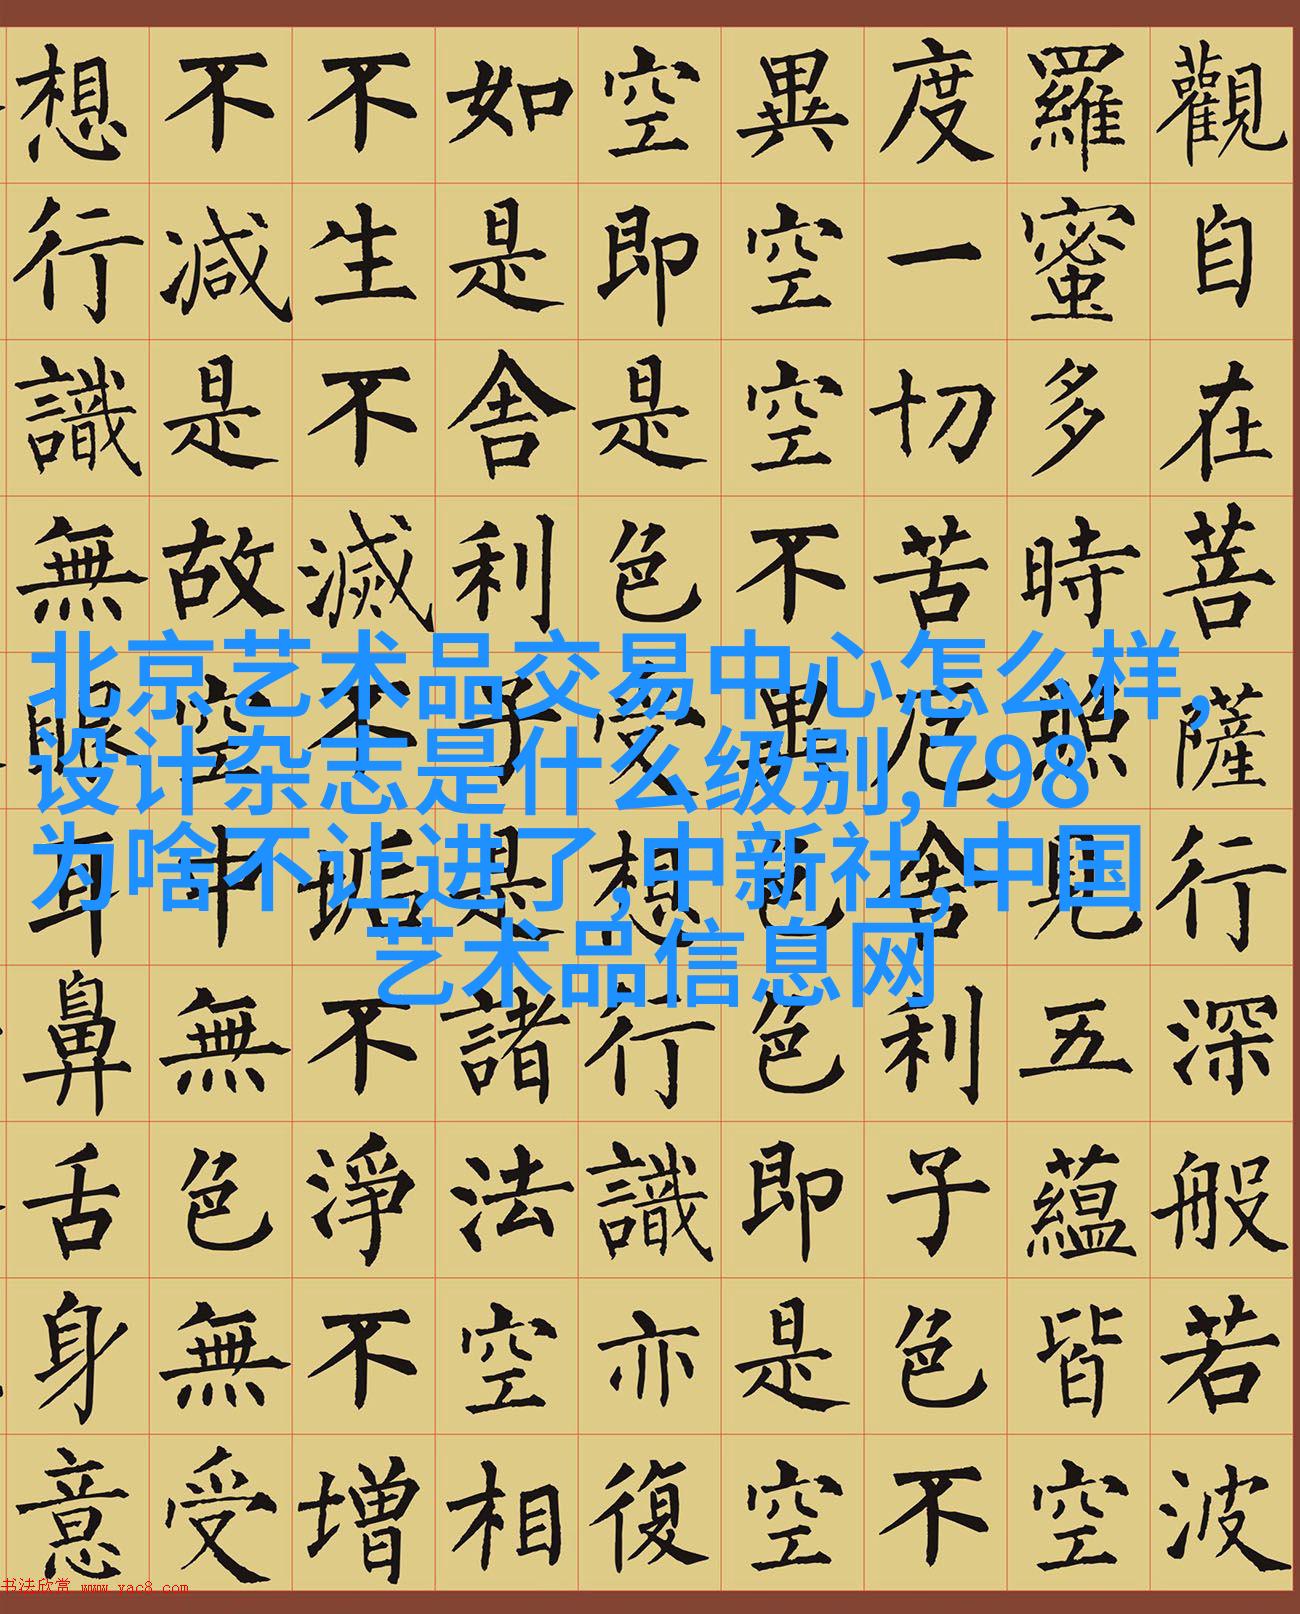 觀自在菩薩行深般若波
羅蜜多時照見五蘊皆空
度一切苦厄舍利子色不
異空空不異色色即是空
空即是色受想行識亦復
如是舍利子是諸法空相
不生不滅不垢不淨不增
不減是故空中無色無受
想行識無眼耳鼻舌身意
北京艺术品交易中心怎么样,
设计杂志是什么级别,798
为啥不让进了,中新社,中国
艺术品信息网
书法欣赏 www.yac8.com